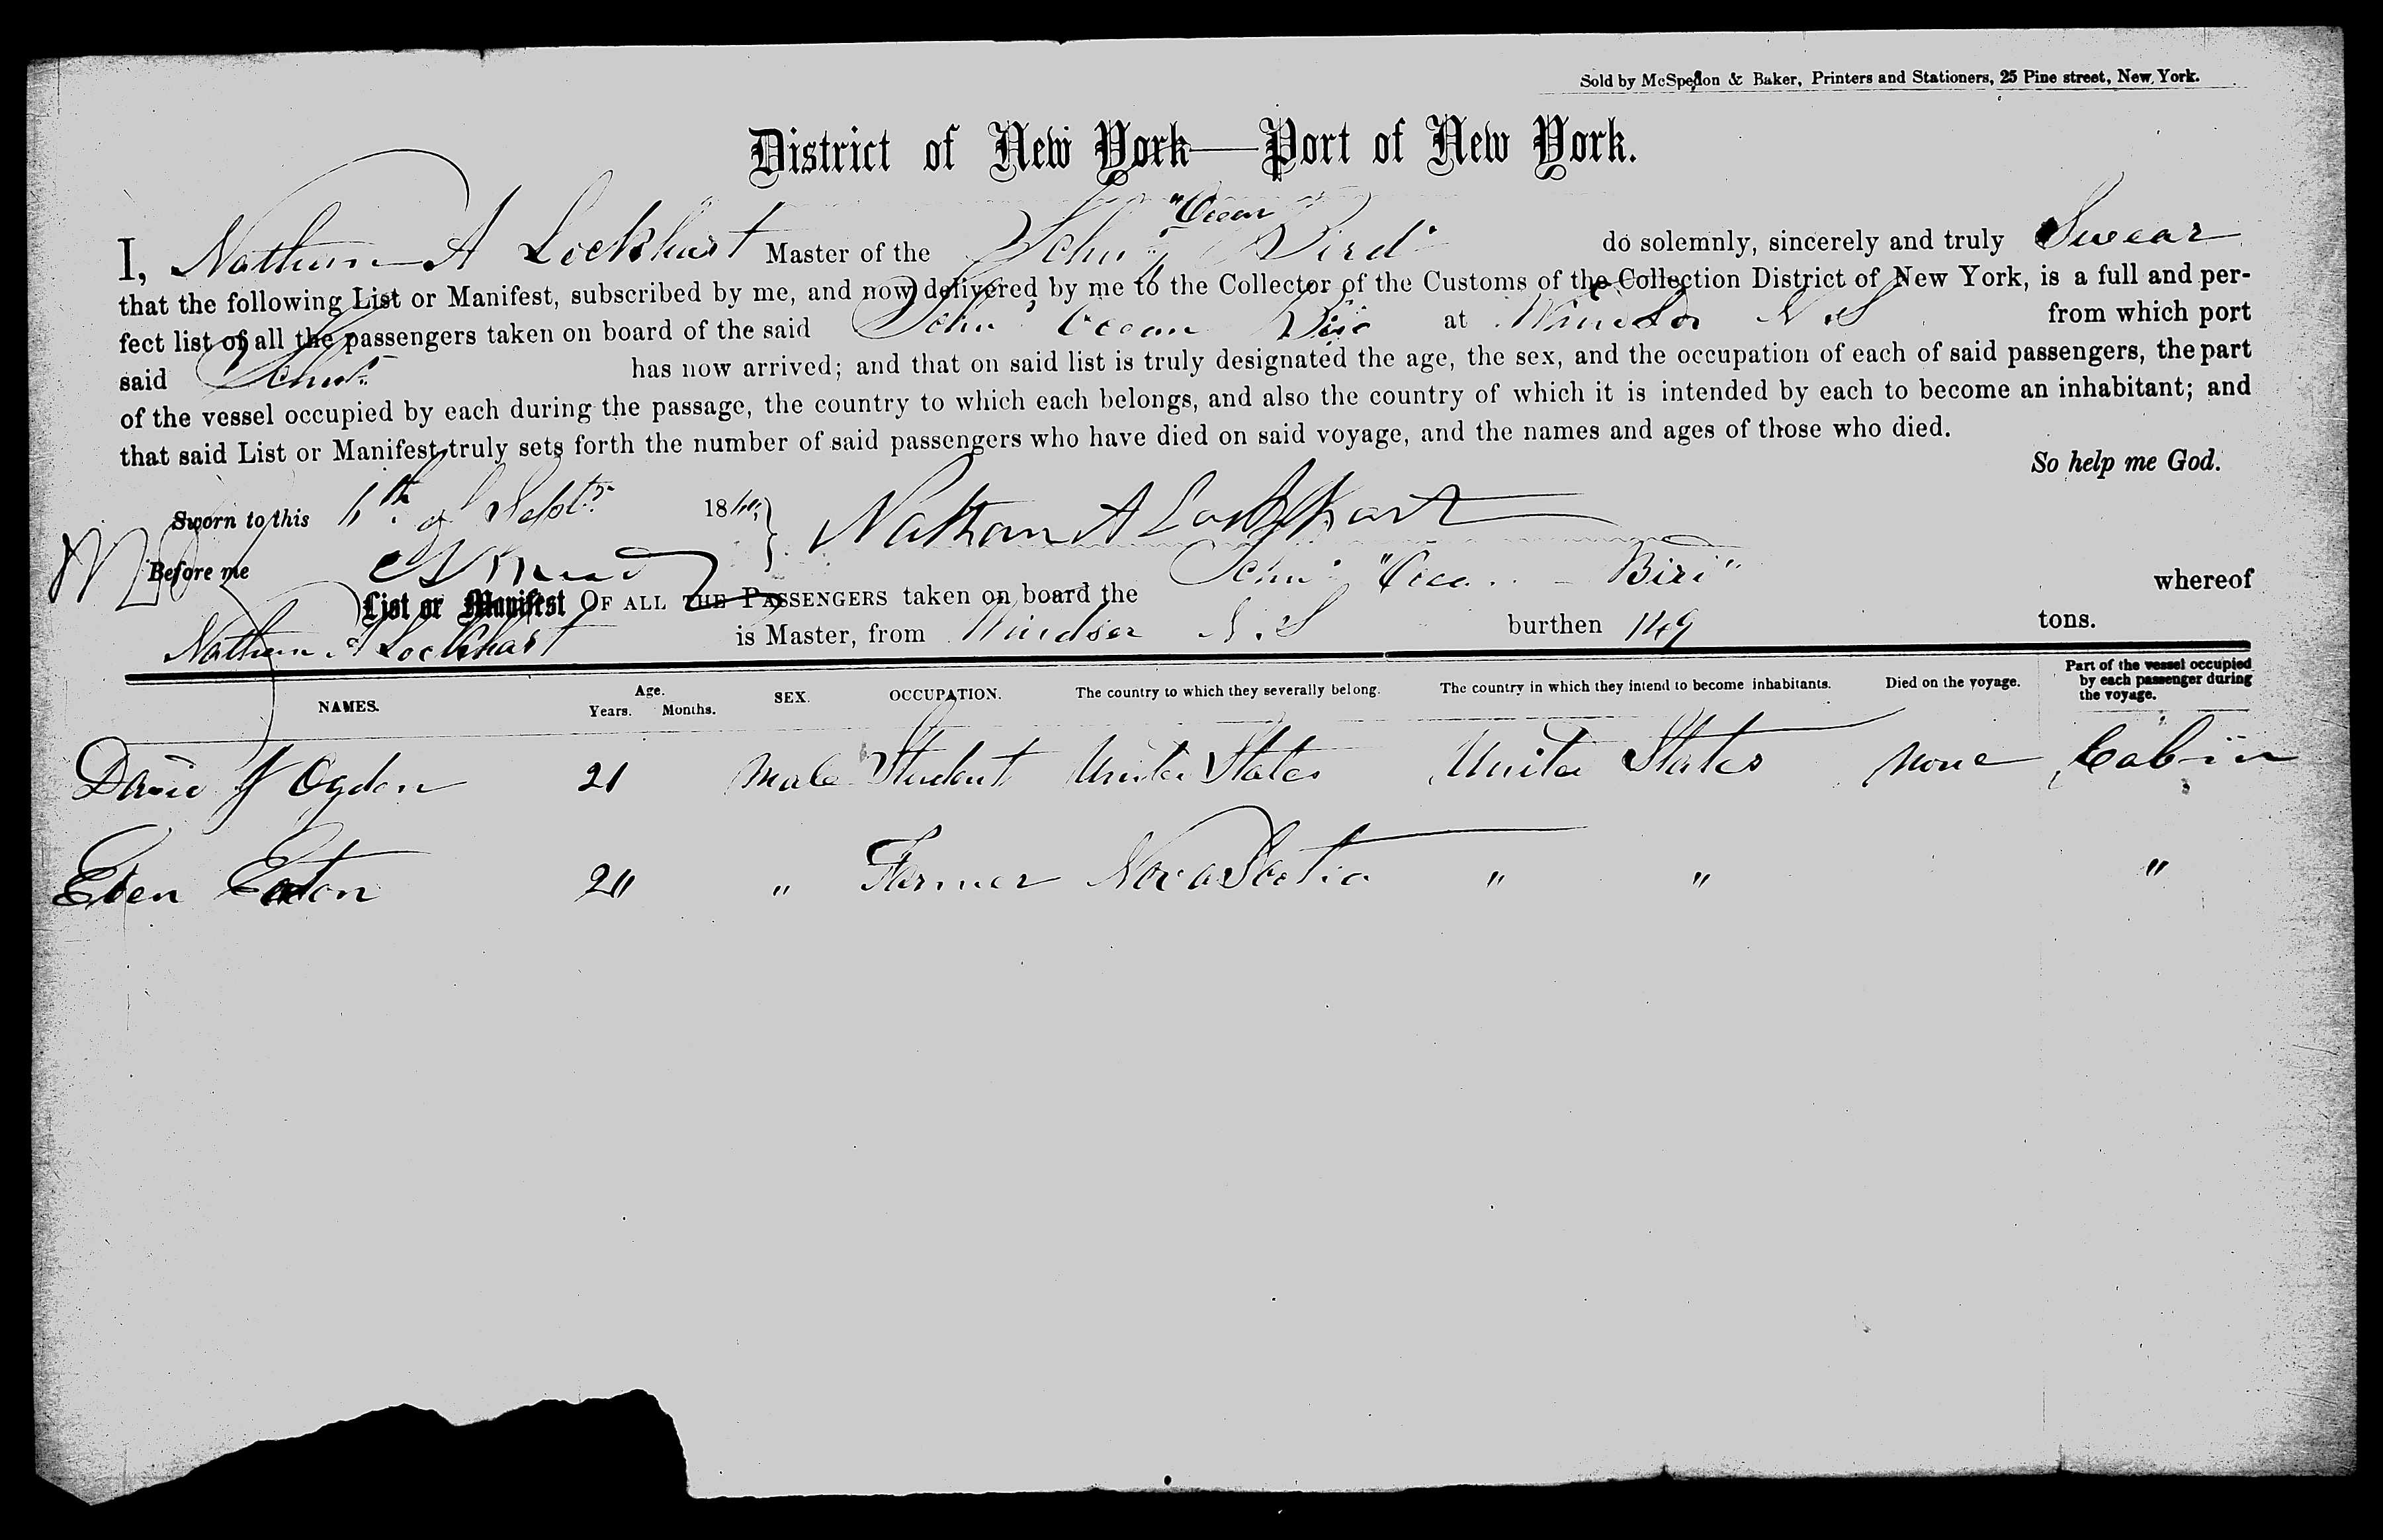 Sold by McSpedon & Baker, Printers and Stationers, 25 Pine street, New York.
District of New York—Port of New York.
I, Nathan A Lockhart Master of the Schr "Ocean Bird" do solemnly, sincerely and truly Swear
that the following List or Manifest, subscribed by me, and now delivered by me to the Collector of the Customs of the Collection District of New York, is a full and per-
fect list of all the passengers taken on board of the said Schr Ocean Bird at Windsor N.S from which port
said Schr has now arrived; and that on said list is truly designated the age, the sex, and the occupation of each of said passengers, the part
of the vessel occupied by each during the passage, the country to which each belongs, and also the country of which it is intended by each to become an inhabitant; and
that said List or Manifest truly sets forth the number of said passengers who have died on said voyage, and the names and ages of those who died.
So help me God.
Sworn to this 6th of Sept 18 Nathan A Lockhart
Before me
List or Manifest OF ALL THE PASSENGERS taken on board the Schr "Ocean Bird" whereof
Nathan A Lockhart is Master, from Windsor N.S burthen 149 tons.
NAMES. Age. Years. Months. SEX. OCCUPATION. The country to which they severally belong. The country in which they intend to become inhabitants. Died on the voyage. Part of the vessel occupied by each passenger during the voyage.
David Ogden 21 Male Student United States United States None Cabin
Eben Eaton 2 " Farmer Nova Scotia " " "